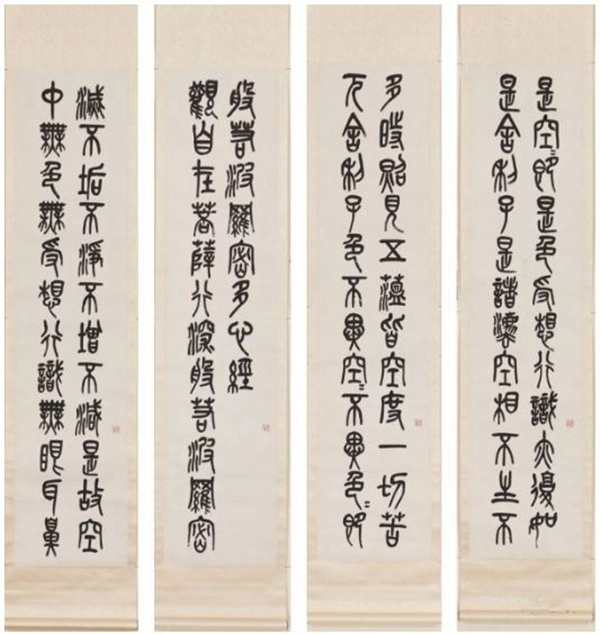 般若波羅密多心經
觀自在菩薩行深般若波羅密
多時照見五蘊皆空度一切苦
厄舍利子色不異空〻不異色〻即
是空〻即是色受想行識亦復如
是舍利子是諸灋空相不生不
滅不垢不淨不增不減是故空
中無色無受想行識無眼耳鼻